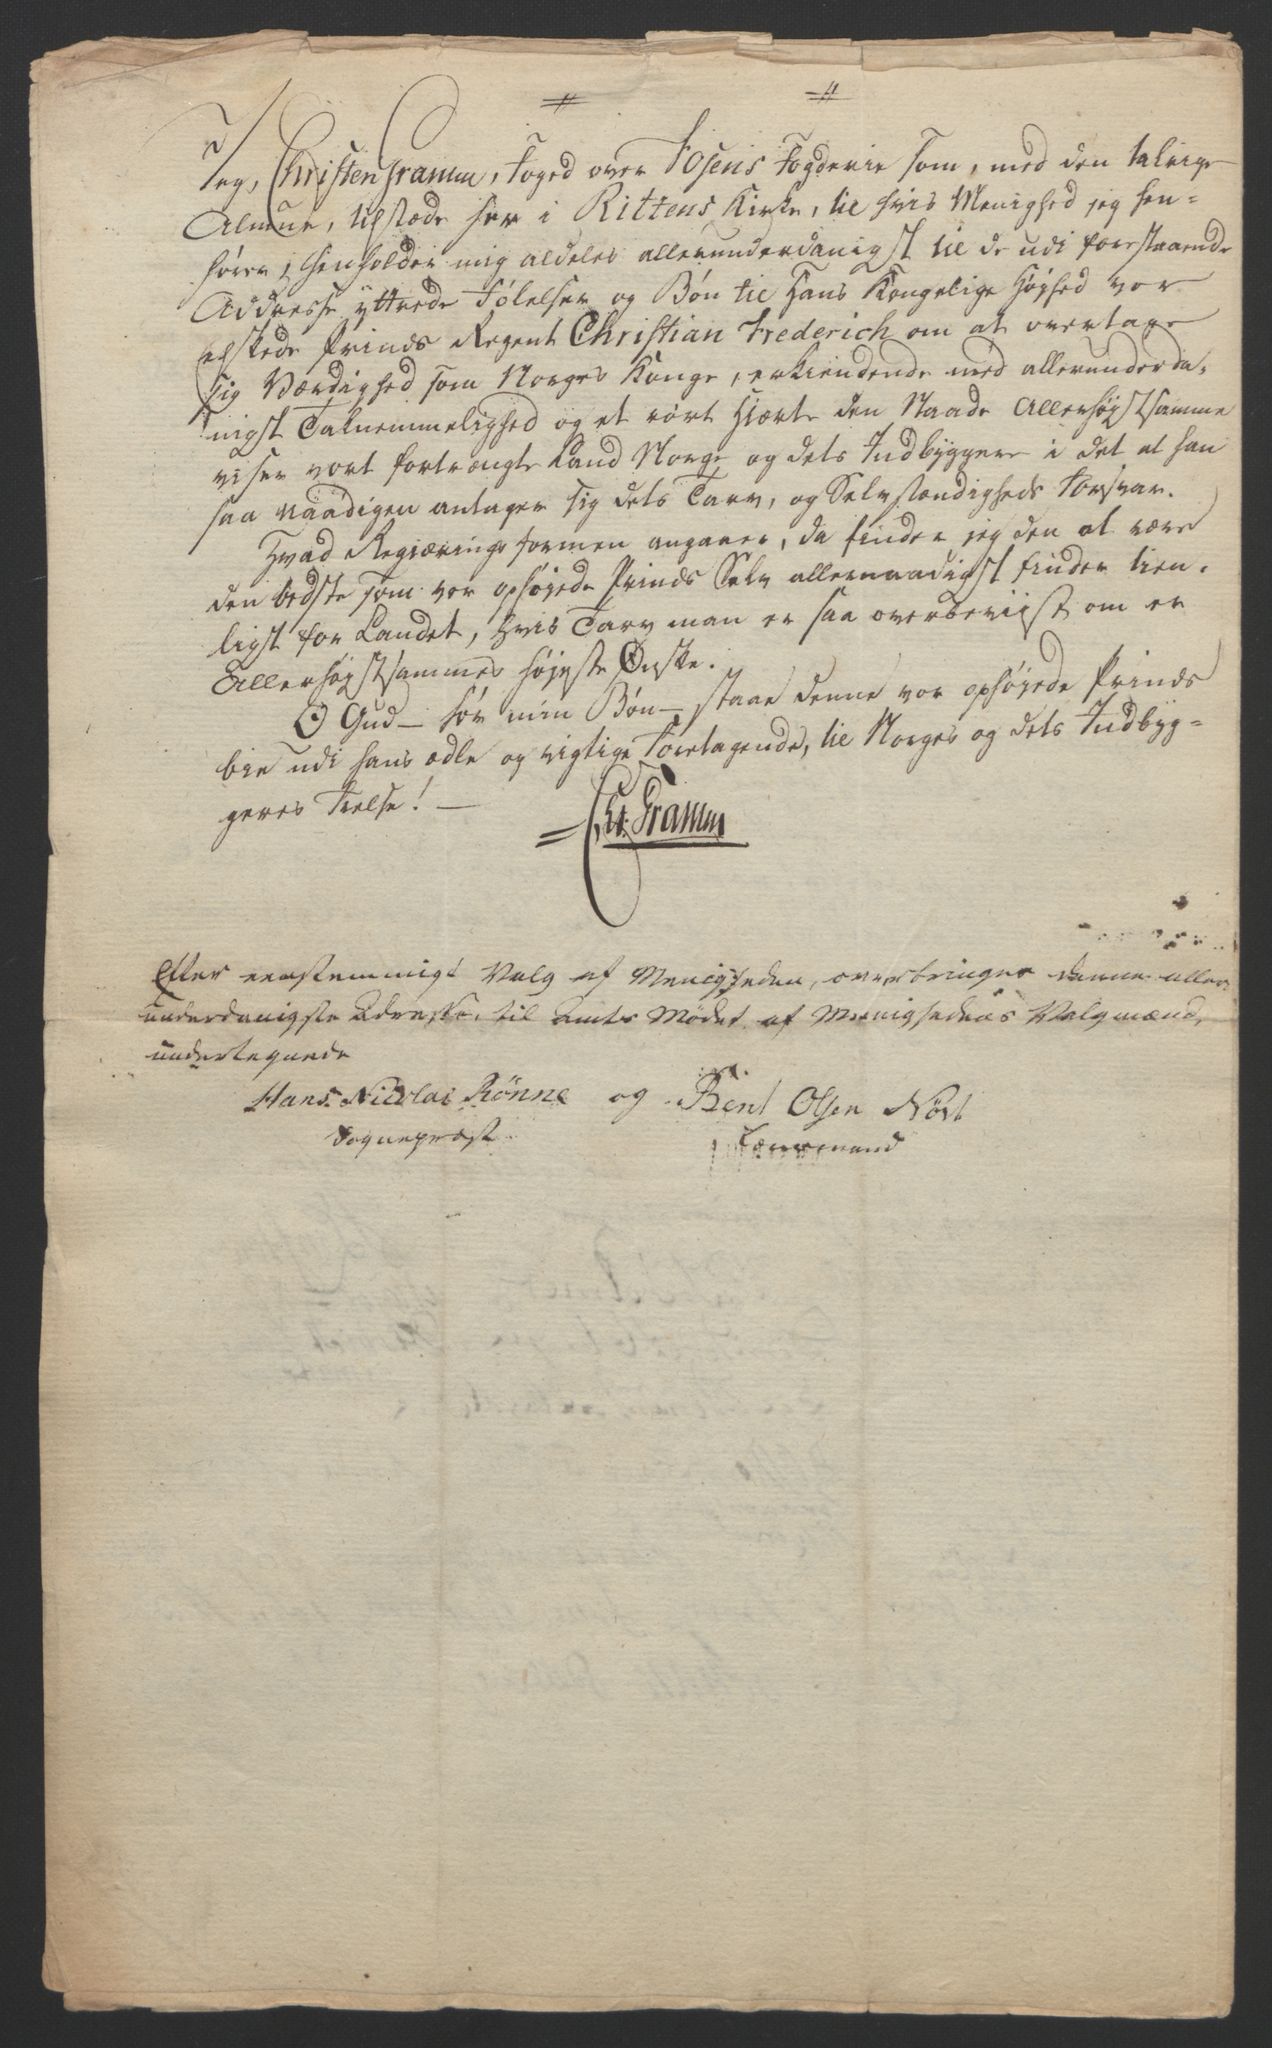 Jeg, Christen Gramm, Foged over Fosens Fogderie som, med den talrige
Almue, tilstæde her i Rittens Kirke, til hvis Menighed jeg hen=
hører, henholder mig aldeles allerunderdanigst til de udi forestaaende
Addresse yttrede Følelser og Bøn til Hans Kongelige Høyhed vor
elskede Prinds Regent Christian Frederich om at overtage
sig Værdighed som Norges Konge, erkiendende med allerunderda=
nigst Taknemmelighed og et rørt Hierte den Naade Allerhøystsamme
viser vort fortrængte Land Norge og dets Indbyggere i det at han
saa naadigen antager sig dets Tarv, og Selvstændigheds Forsvar.
Hvad Regierings formen angaaer, da finder jeg den at være
den bedste som vor ophøyede Prinds Selv allernaadigst finder tien=
ligst for Landet, hvis Tarv man er saa overbeviist om er
Allerhøystsammes høyeste Ønske.
O Gud – hør min Bøn – staae denne vor ophøyede Prinds
bie udi hans ædle og vigtige Foretagende, til Norges og dets Indbyg=
geres Frelse! —
Chr. Gramm
Efter eenstemmigt Valg af Menigheden, overbringes denne aller
underdanigste Adresse, til Amts Mødet af Menighedens Valgmænd,
undertegnede
Hans Nicolai Rönne og Bent Olsen Nört
Sogneprest